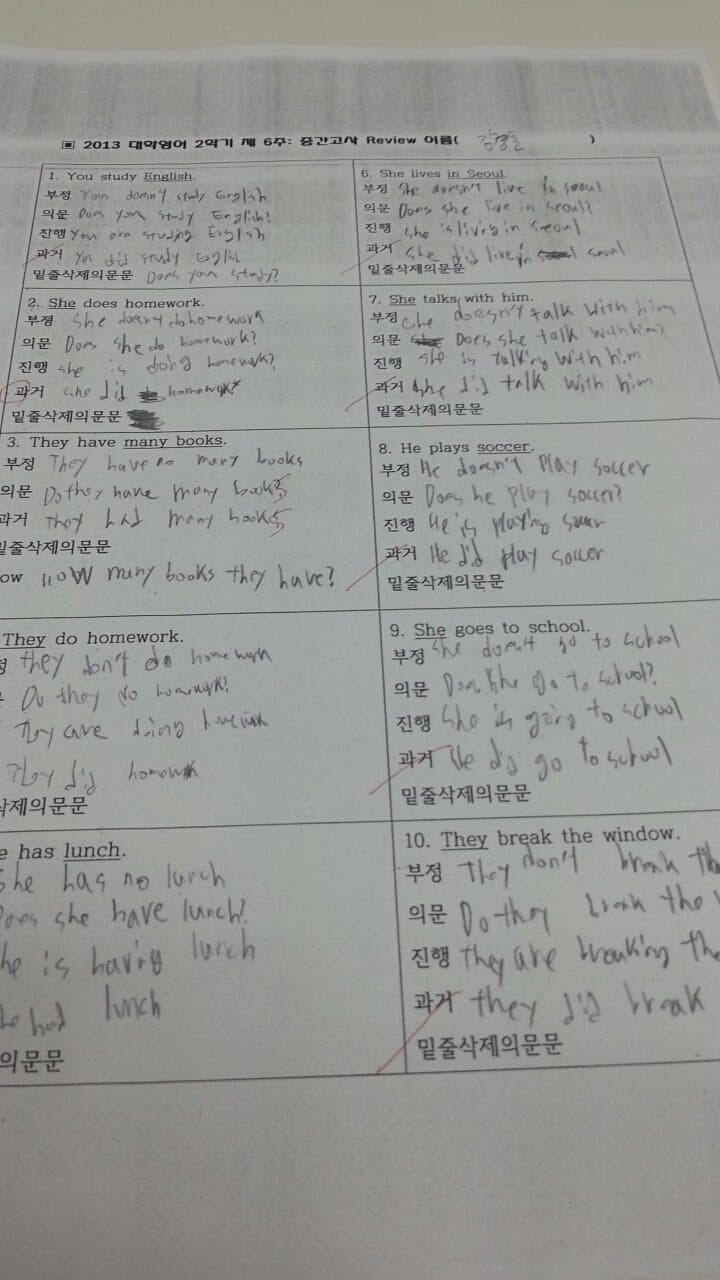 ▣ 2013 대학영어 2학기 제 6주: 중간고사 Review 이름( )
1. You study English.
부정 You doesn't study English
의문 Does you study English?
진행 You are studing English
과거 You did study English
밑줄삭제의문문 Does you study?
2. She does homework.
부정 She doesn't do homework
의문 Does she do homework?
진행 she is doing homework?
과거 she did homework?
밑줄삭제의문문
3. They have many books.
부정 They have no many books
의문 Do they have many books
과거 They had many books
밑줄삭제의문문
ow How many books they have?
They do homework.
they don't do homework
Do they do homework?
They are doing
They did homework
삭제의문문
e has lunch.
she has no lunch
Does she have lunch?
he is having lunch
he had lunch
의문문
6. She lives in Seoul.
부정 She doesn't live in seoul
의문 Does she live in seoul?
진행 she is living in seoul
과거 she did live in seoul
밑줄삭제의문문
7. She talks with him.
부정 she doesn't talk with him
의문 Does she talk with him?
진행 she is talking with him
과거 she did talk with him
밑줄삭제의문문
8. He plays soccer.
부정 He doesn't play soccer
의문 Does he play soccer?
진행 He is playing soccer
과거 He did play soccer
밑줄삭제의문문
9. She goes to school.
부정 She doesn't go to school
의문 Does she go to school?
진행 she is going to school
과거 He did go to school
밑줄삭제의문문
10. They break the window.
부정 They don't break the
의문 Do they break the
진행 they are breaking the
과거 they did break
밑줄삭제의문문